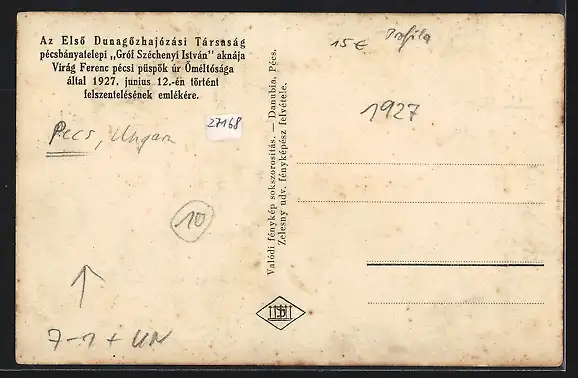 Az Első Dunagőzhajózási Társaság
pécsbányatelepi „Gróf Széchenyi István” aknája
Virág Ferenc pécsi püspök úr Őméltósága
által 1927. junius 12.-én történt
felszentelésének emlékére.
15€
1927
27168
Pecs, Ungarn
10
7-1 + UN
Valódi fénykép sokszorosítás. — Danubia, Pécs.
Zelesny udv. fényképész felvétele.